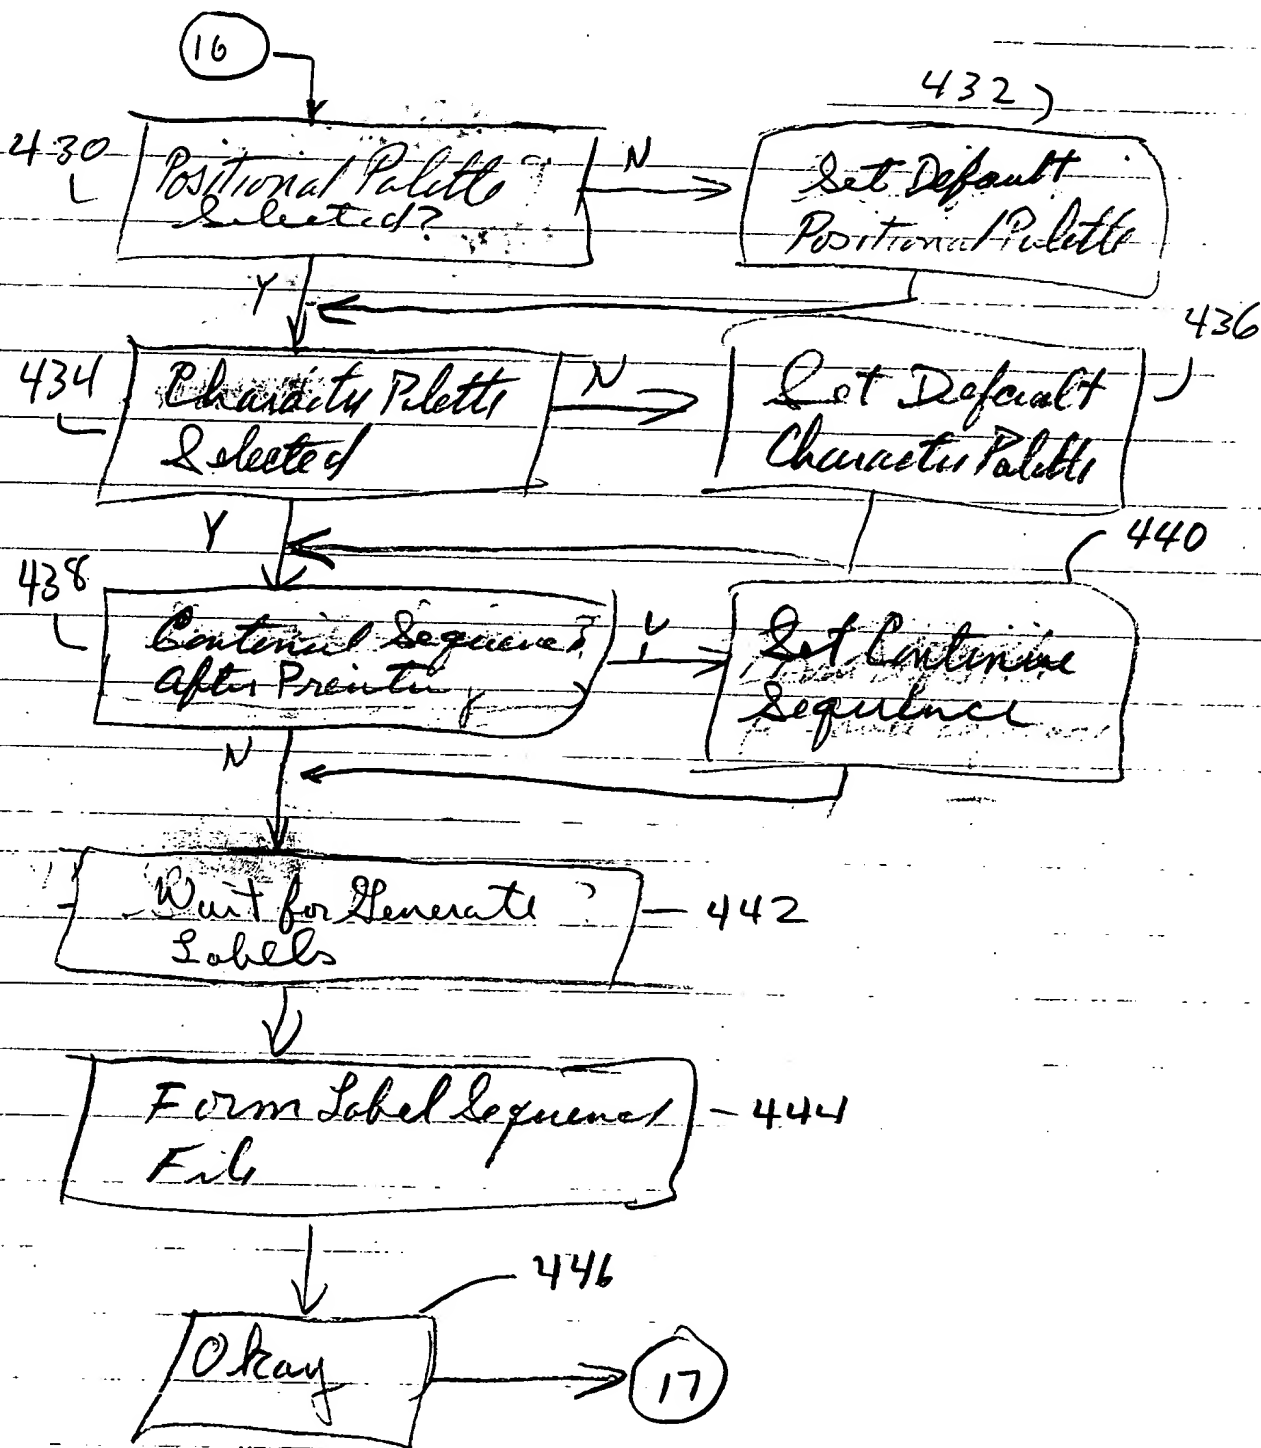 16
432
430
Positional Palette
Selected?
N
Set Default
Positional Palette
Y
436
434
Character Palette
Selected
N
Set Default
Character Palette
Y
440
438
Sequence?
After
Set Continue
Sequence
N
Wait for Generate ?
Labels
442
Form Label Sequence
File
444
446
Okay
17